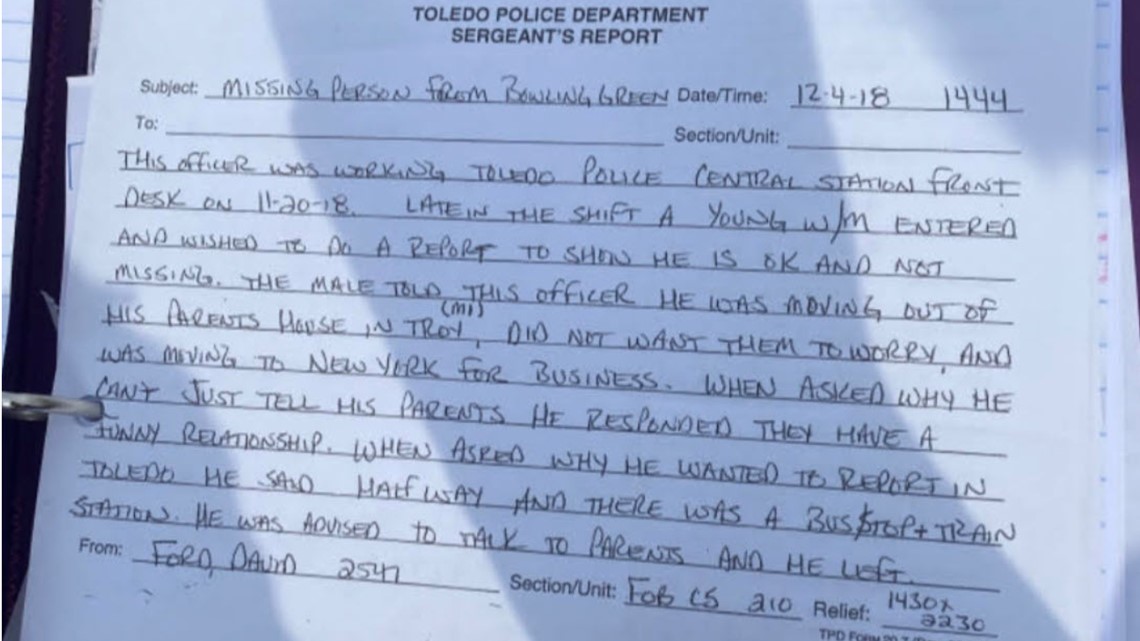 TOLEDO POLICE DEPARTMENT
SERGEANT'S REPORT
Subject: MISSING PERSON FROM BOWLING GREEN Date/Time: 12-4-18 1444
To: Section/Unit:
THIS OFFICER WAS WORKING TOLEDO POLICE CENTRAL STATION FRONT
DESK ON 11-20-18. LATE IN THE SHIFT A YOUNG W/M ENTERED
AND WISHED TO DO A REPORT TO SHOW HE IS OK AND NOT
MISSING. THE MALE TOLD THIS OFFICER HE WAS MOVING OUT OF
HIS PARENTS HOUSE IN TROY (MI), DID NOT WANT THEM TO WORRY, AND
WAS MOVING TO NEW YORK FOR BUSINESS. WHEN ASKED WHY HE
CAN'T JUST TELL HIS PARENTS HE RESPONDED THEY HAVE A
FUNNY RELATIONSHIP. WHEN ASKED WHY HE WANTED TO REPORT IN
TOLEDO HE SAID HALFWAY AND THERE WAS A BUS STOP + TRAIN
STATION. HE WAS ADVISED TO TALK TO PARENTS AND HE LEFT.
From: FORD, DAVID 2547 Section/Unit: FOB CS 210 Relief: 1430x
2230
TPD FORM